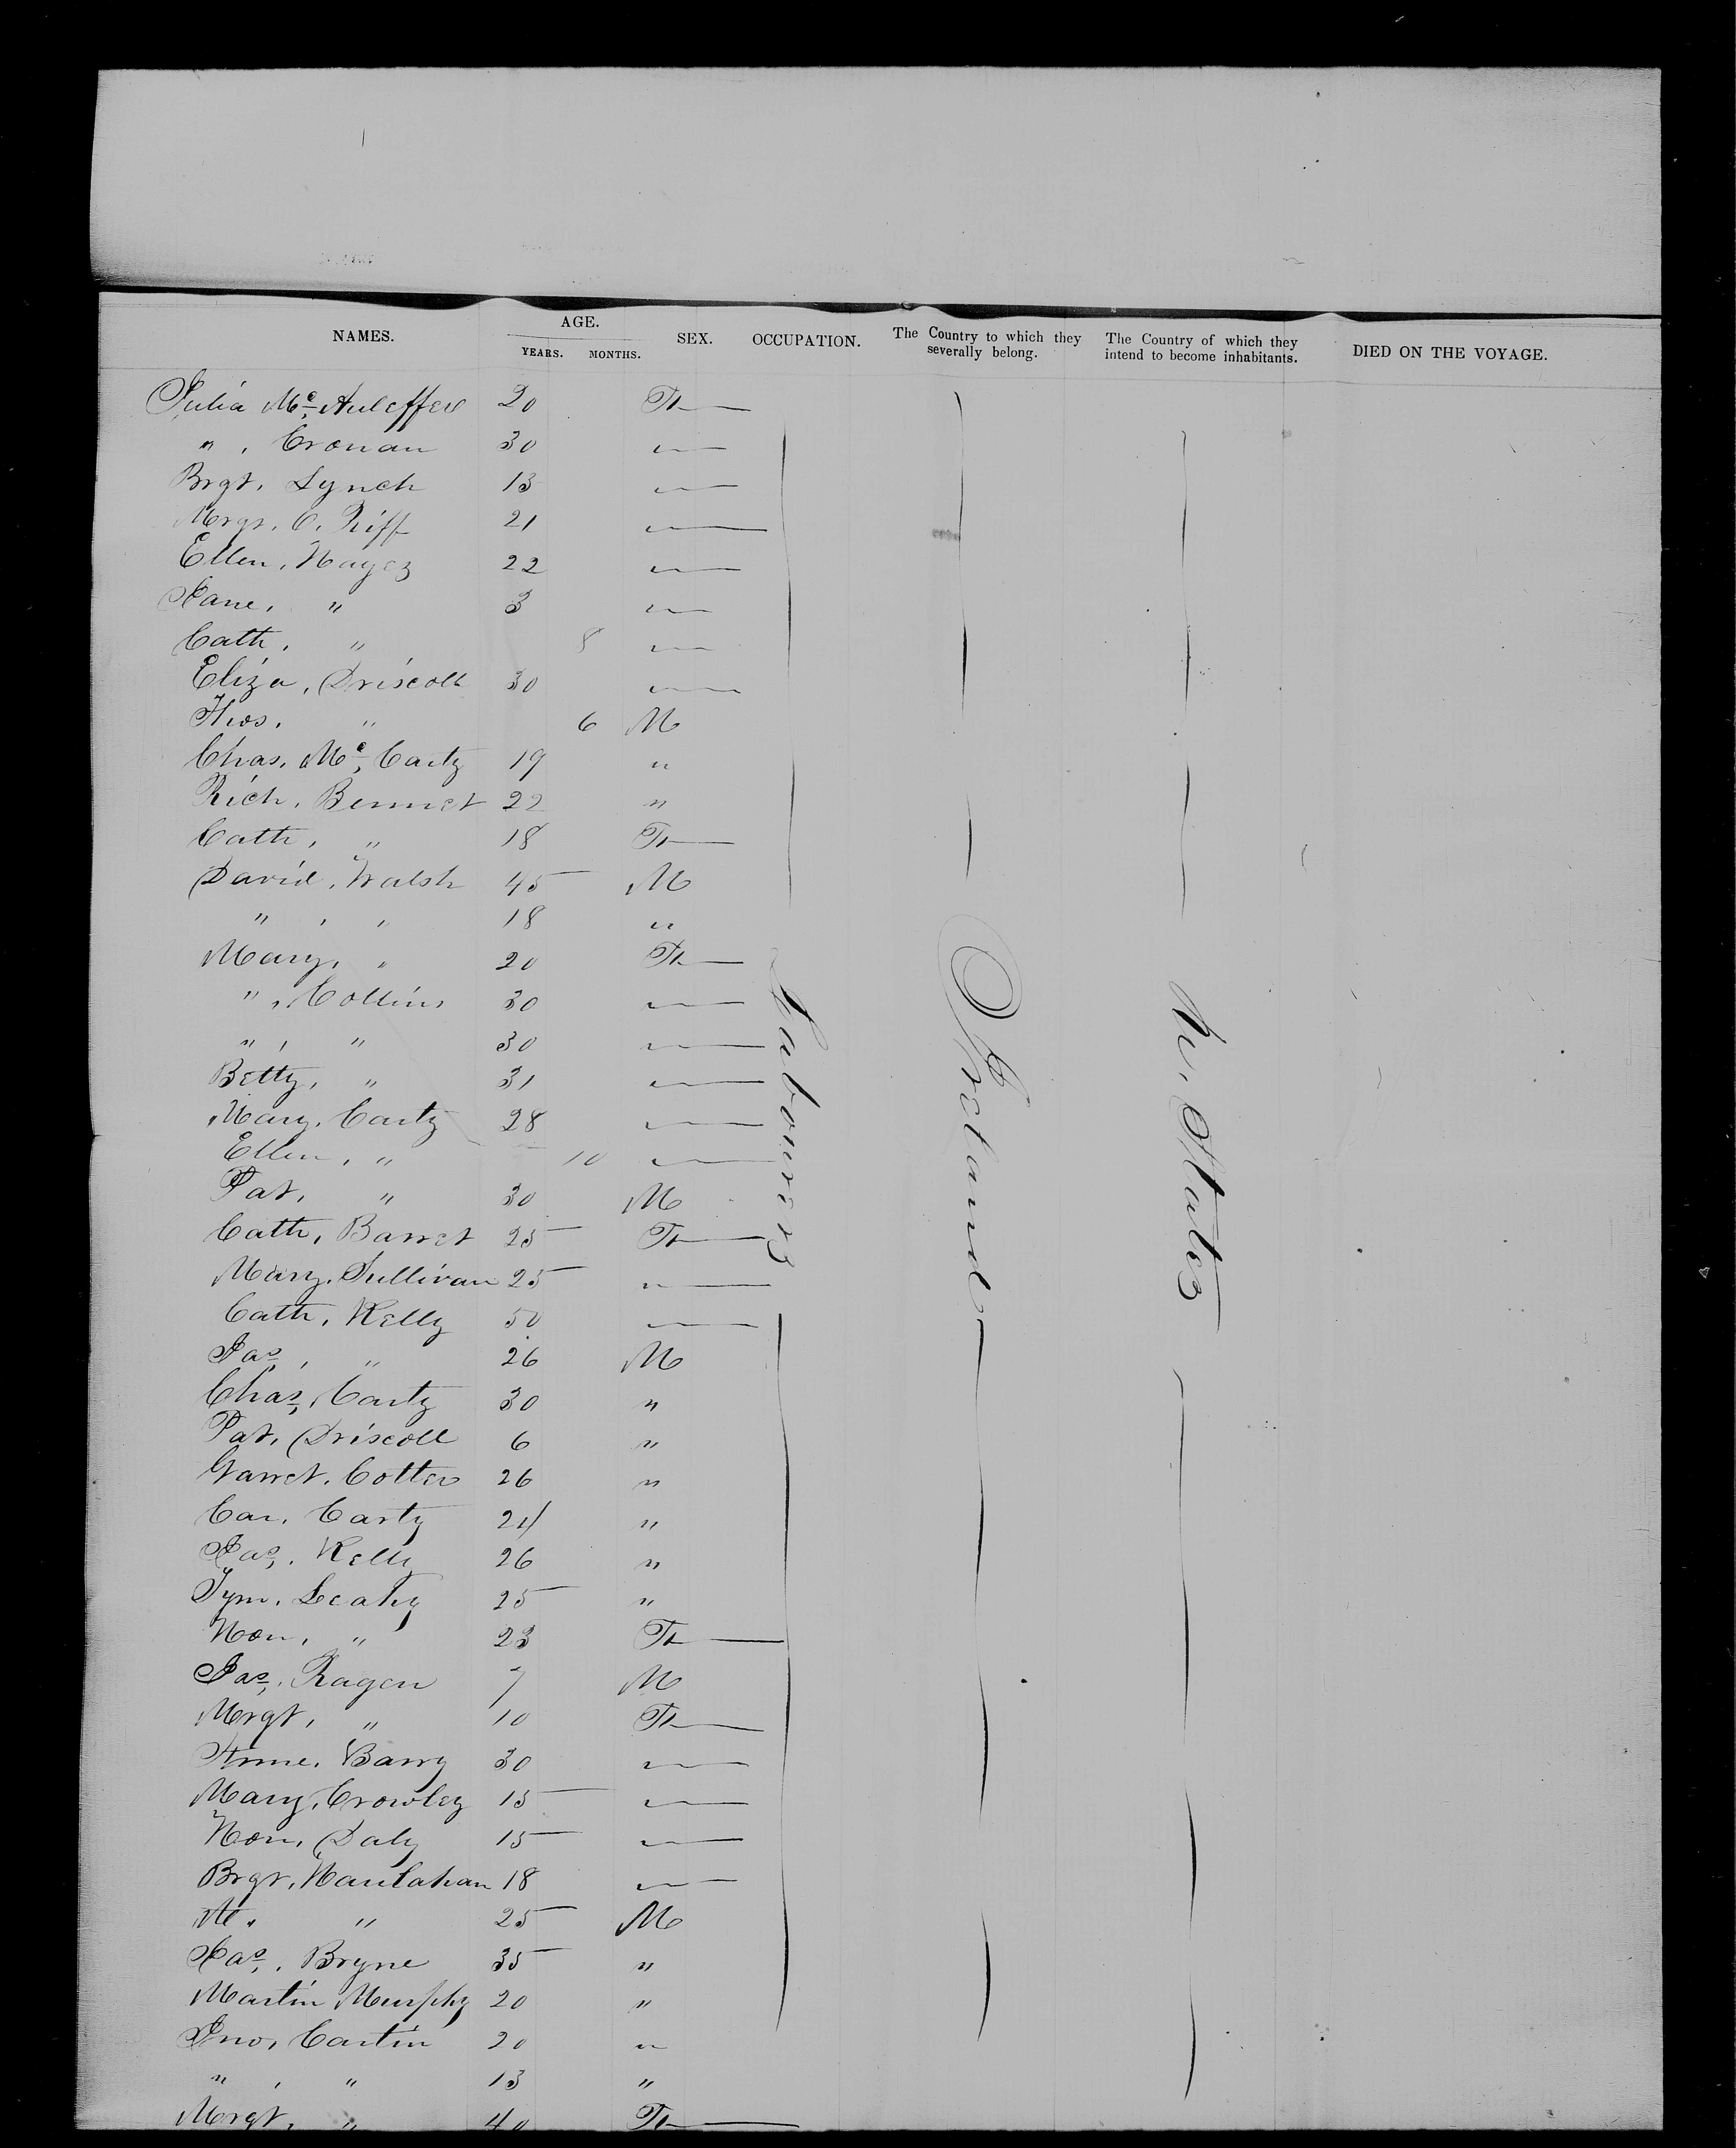 NAMES. AGE. YEARS. MONTHS. SEX. OCCUPATION. The Country to which they severally belong. The Country of which they intend to become inhabitants. DIED ON THE VOYAGE.
Julia Mc Auleffer 20 F
" , Cronan 30 "
Brgt, Lynch 13 "
Mrgt, O, Kiff 21 "
Ellen, Hayes 22 "
Jane, " 3 "
Cath, " 8 "
Eliza, Driscoll 30 "
Thos, " 6 M
Chas, Mc Carty 19 "
Rich, Bennet 22 "
Cath, " 18 F
David, Walsh 45 M
" , " 18 "
Mary, " 20 F
" , Collins 30 "
" , " 30 "
Betty, " 31 "
Mary, Carty 28 "
Ellen, " 10 "
Pat, " 30 M
Cath, Barret 25 F
Mary, Sullivan 25 "
Cath, Kelly 50 "
Jas, " 26 M
Chas, Carty 30 "
Pat, Driscoll 6 "
Garret, Cotter 26 "
Car, Carty 24 "
Jas, Kelly 26 "
Tym, Leahy 25 "
Hon, " 23 F
Jas, Ragen 7 M
Mrgt, " 10 F
Anne, Barry 30 "
Mary, Crowley 15 "
Hon, Daly 15 "
Brgt, Hanlahan 18 "
M. " 25 M
Jas, Bryne 35 "
Martin Murphy 20 "
Jno, Cartin 20 "
" , " 13 "
Mrgt, " 40 F
Labourers
Ireland
U. States